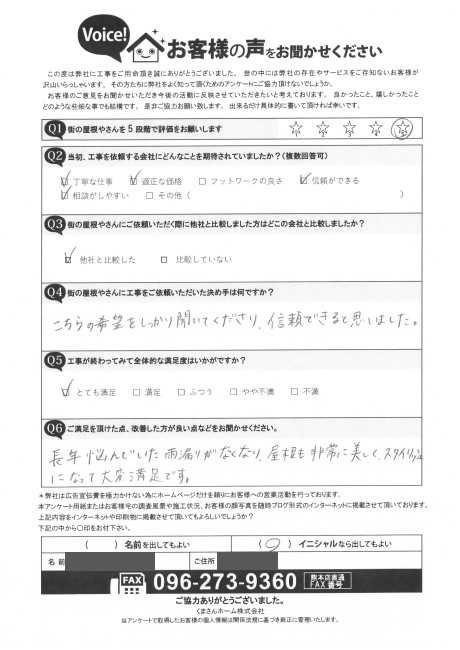 Voice!
お客様の声をお聞かせください
この度は弊社に工事をご用命頂き誠にありがとうございました。世の中には弊社の存在やサービスをご存知ないお客様が
沢山いらっしゃいます。その方たちに弊社をよく知って頂くためのアンケートにご協力頂けないでしょうか。
お客様のご意見をお聞かせいただき今後の活動に反映させていただきたいと考えております。良かったこと、嬉しかったこと
どのような些細な事でも結構です。是非ご協力お願い致します。出来るだけ具体的に書いて頂ければ幸いです。
Q1 街の屋根やさんを5段階で評価をお願いします
1 2 3 4 5
Q2 当初、工事を依頼する会社にどんなことを期待されていましたか？(複数回答可)
☑ 丁寧な仕事 ☑ 適正な価格 □ フットワークの良さ ☑ 信頼ができる
☑ 相談がしやすい □ その他（ ）
Q3 街の屋根やさんにご依頼いただく際に他社と比較しました方はどこの会社と比較しましたか？
☑ 他社と比較した □ 比較していない
Q4 街の屋根やさんに工事をご依頼いただいた決め手は何ですか？
こちらの希望をしっかり聞いてくださり、信頼できると思いました。
Q5 工事が終わってみて全体的な満足度はいかがですか？
☑ とても満足 □ 満足 □ ふつう □ やや不満 □ 不満
Q6 ご満足を頂けた点、改善した方が良い点などをお聞かせください。
長年悩んでいた雨漏りがなくなり、屋根も非常に美しく、スタイリッシュ
になって大変満足です。
＊弊社は広告宣伝費を極力かけない為にホームページだけを頼りにお客様への営業活動を行っております。
本アンケート用紙またはお客様宅の調査風景や施工状況、お客様の顔写真を随時ブログ形式のインターネットに掲載させて頂いております。
上記内容をインターネットや印刷物に掲載させて頂いてもよろしいでしょうか？
下記の中から〇印をお付下さい。
（ ）名前を出してもよい （〇）イニシャルなら出してもよい
名前 ご住所
FAX 096-273-9360 熊本店直通 FAX番号
ご協力ありがとうございました。
くまさんホーム株式会社
当アンケートで取得したお客様の個人情報は関係法規に基づき厳正に管理いたします。